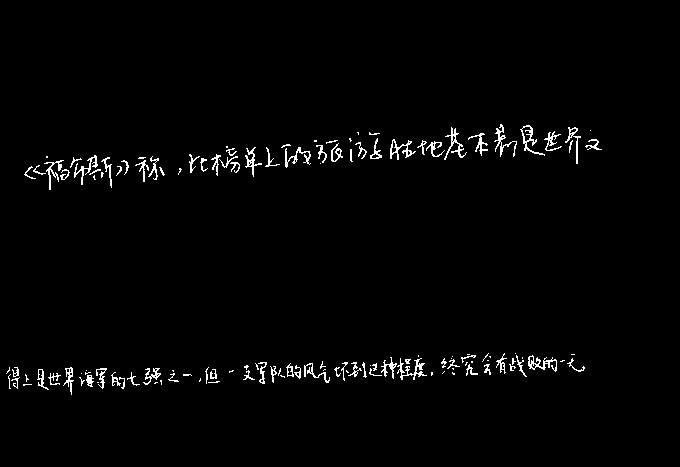 《福布斯》称，此榜单上的旅游胜地基本都是世界文
得上是世界海军的七强之一，但一支军队的风气坏到这种程度，终究会有战败的一天。